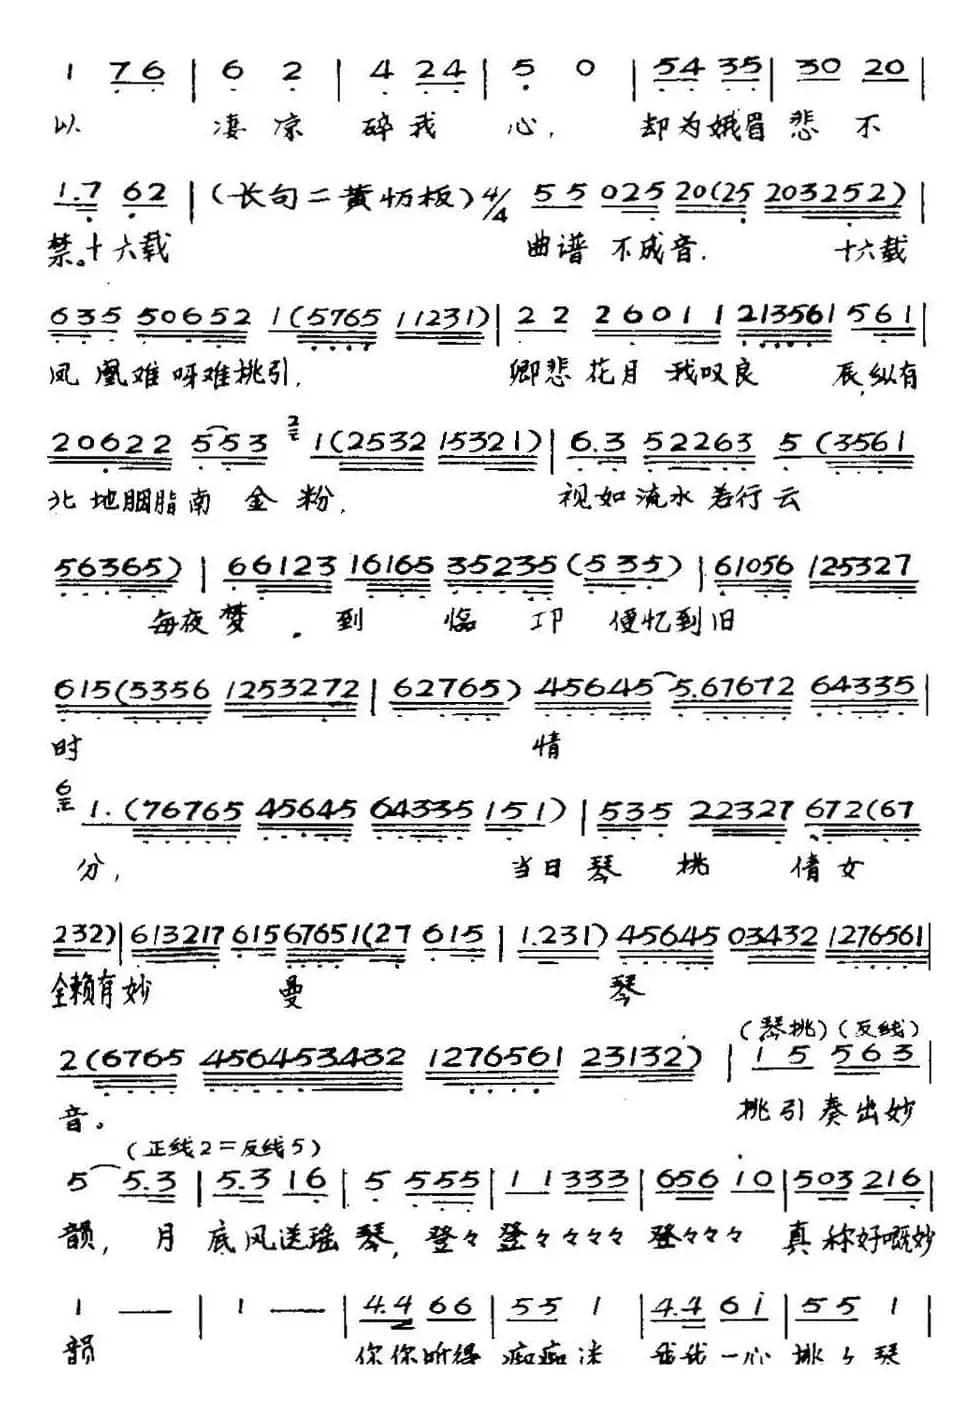 1 76 | 6 2 | 4 24 | 5 0 | 54 35 | 30 20 |
以 凄凉 碎我 心, 却为娥眉悲 不
1.7 62 | (长句二黄忾板) 4/4 55 025 20(25 203252) |
禁。十六载 曲谱 不成音. 十六载
635 50652 1(5765 11231) | 22 26011 213561 561 |
凤凰难呀难挑引, 卿悲花月 我叹良 辰,纵有
20622 553 2 1(2532 15321) | 6.3 52263 5(3561
北地胭脂南 金粉, 视如流水若行云
56365) | 66123 16165 35235 (535) | 61056 125327
每夜梦 到 临 邛 便忆到旧
615(5356 1253272 | 62765) 45645 5.67672 64335 |
时 情
6 1.(76765 45645 64335 151) | 535 22327 672(67
分, 当日琴 挑 倩女
232) | 613217 61567651(27 615 | 1.231) 45645 03432 1276561 |
全赖有妙 曼 琴
(琴挑)(反线)
2(6765 456453432 1276561 23132) | 15 563 |
音。 挑引奏出妙
(正线2=反线5)
5 5.3 | 5.3 16 | 5 555 | 11333 | 656 i0 | 503 216 |
韻, 月 底风送瑶 琴, 登々 登々々々々 登々々々 真 称好嘅妙
1 — | 1 — | 4.4 66 | 55 1 | 4.4 6i | 55 1 |
韻 你你听得 痴痴迷 我我一心 挑々琴